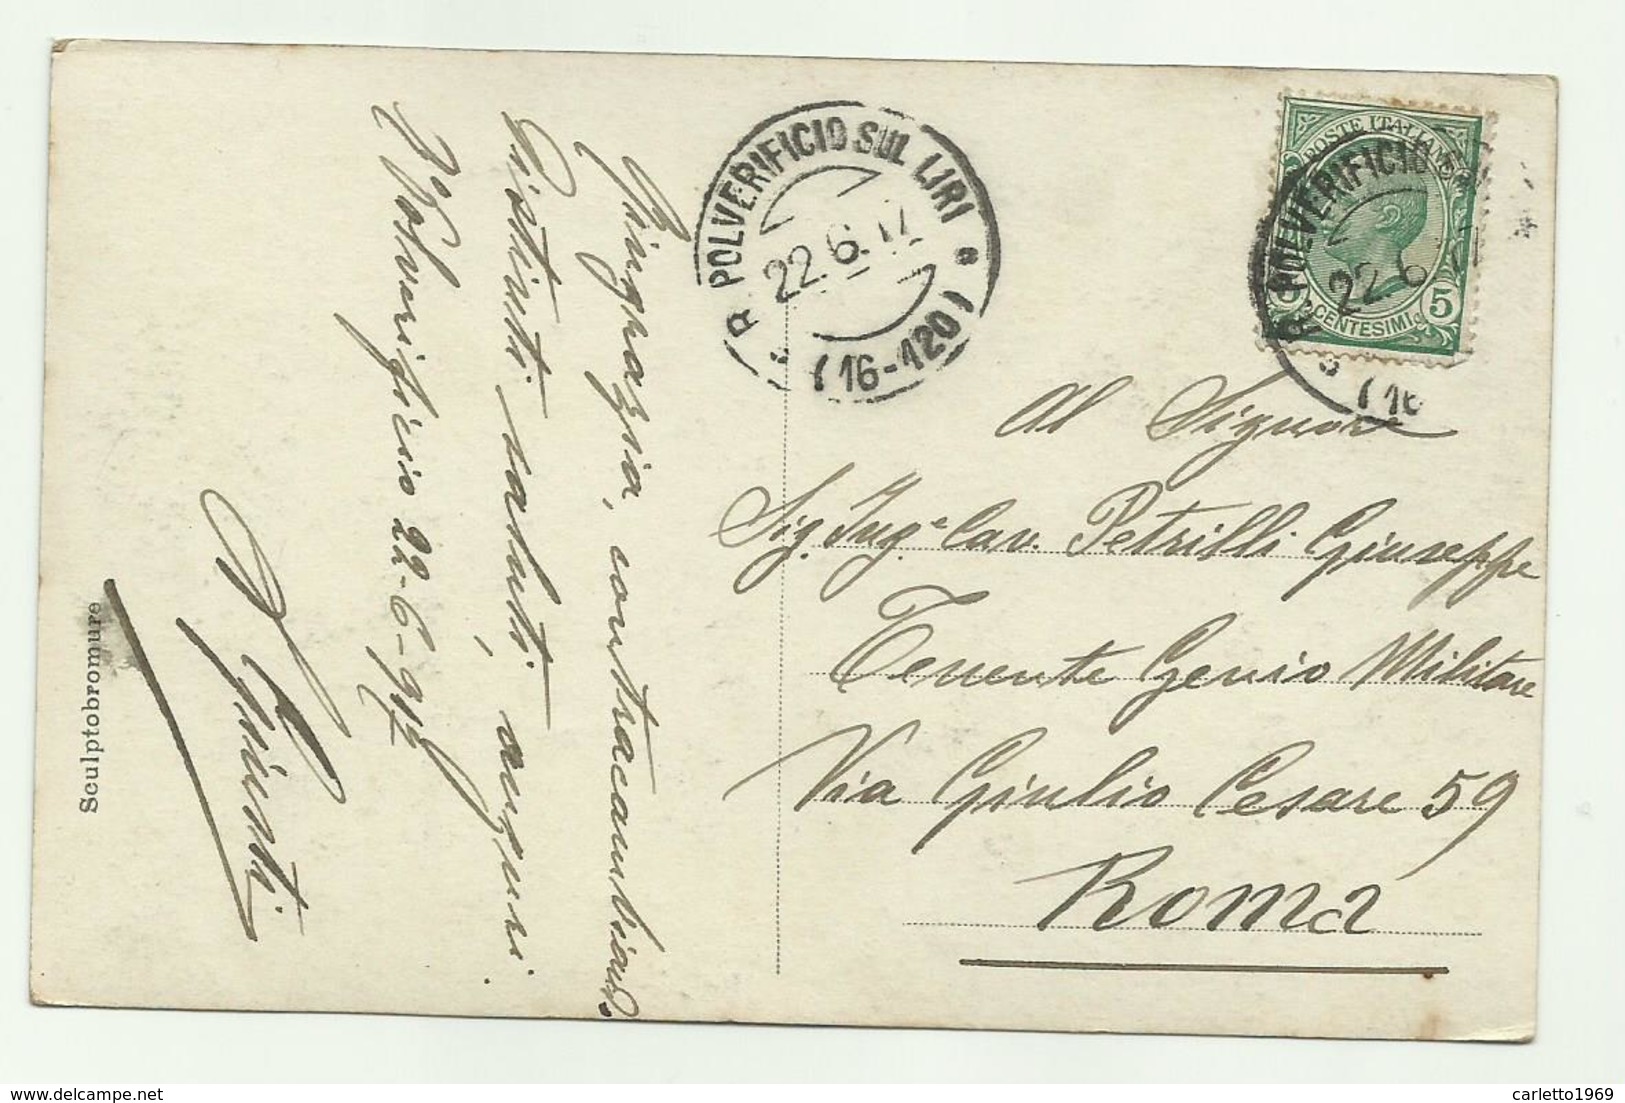 Ringrazia, contracambiando
Distinti saluti, auguri.
Polverificio 22-6-917
Sculptobromure
R. POLVERIFICIO SUL LIRI
22.6.17
(16-120)
POSTE ITALIANE
CENTESIMI
5
R. POLVERIFICIO S
22.6.17
(16
Al Signore
Sig. Ing.e Cav. Petrilli Giuseppe
Tenente Genio Militare
Via Giulio Cesare 59
Roma
carletto1969